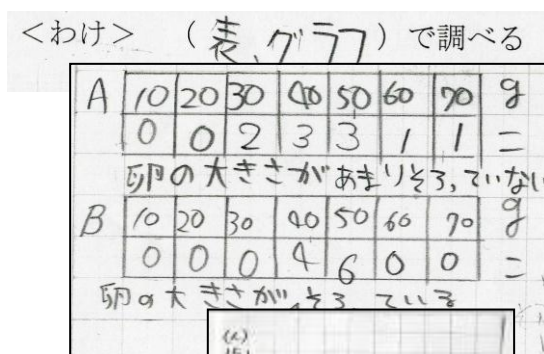 <わけ> (表、グラフ)で調べる
A 10 20 30 40 50 60 70 g
0 0 2 3 3 1 1 こ
卵の大きさがあまりそろっていない
B 10 20 30 40 50 60 70 g
0 0 0 4 6 0 0 こ
卵の大きさがそろっている
(人)